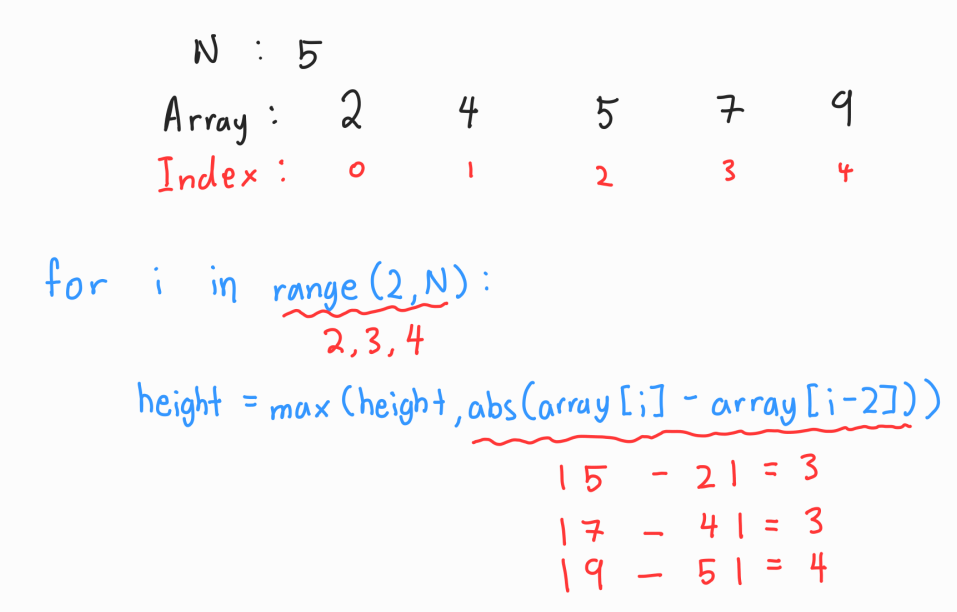 N : 5
Array : 2 4 5 7 9
Index : 0 1 2 3 4
for i in range(2,N):
2,3,4
height = max(height,abs(array[i] - array[i-2]))
|5 - 2| = 3
|7 - 4| = 3
|9 - 5| = 4